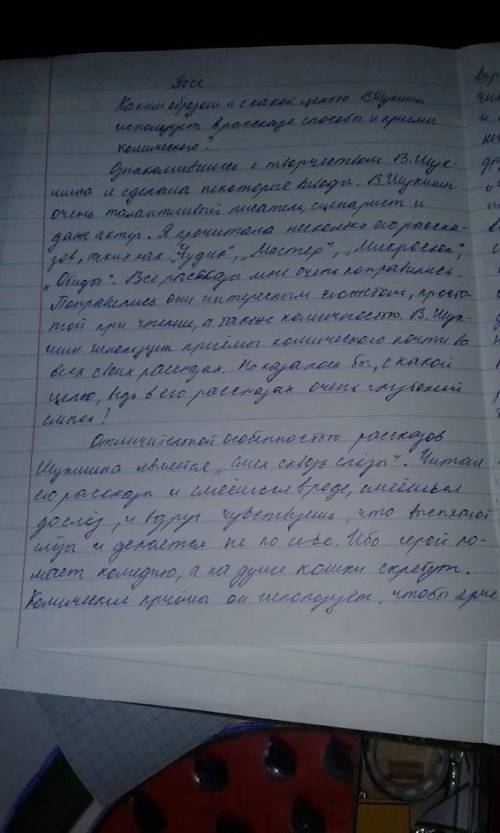 Эссе
Каким образом и с какой целью В.Шукшин
использует в рассказе способы и приёмы
комического?
Ознакомившись с творчеством В.Шук-
шина я сделала некоторые выводы. В.Шукшин
очень талантливый писатель, сценарист и
даже актёр. Я прочитала несколько его расска-
зов, таких как "Чудик", "Мастер", "Микроскоп",
"Обида". Все рассказы мне очень понравились.
Понравились они интересным сюжетом, просто-
той при чтении, а также комичностью. В.Шук-
шин использует приёмы комического почти во
всех своих рассказах. Но казалось бы, с какой
целью, ведь в его рассказах очень глубокий
смысл!
Отличительной особенностью рассказов
Шукшина является "смех сквозь слёзы". Читая
его рассказы и смеёшься вроде, смеёшься
до слёз, и вдруг чувствуешь, что высыхают
слёзы и делается не по себе. Ибо герой ло-
мает комедию, а на душе кошки скребут.
Комические приёмы он использует, чтобы ярче